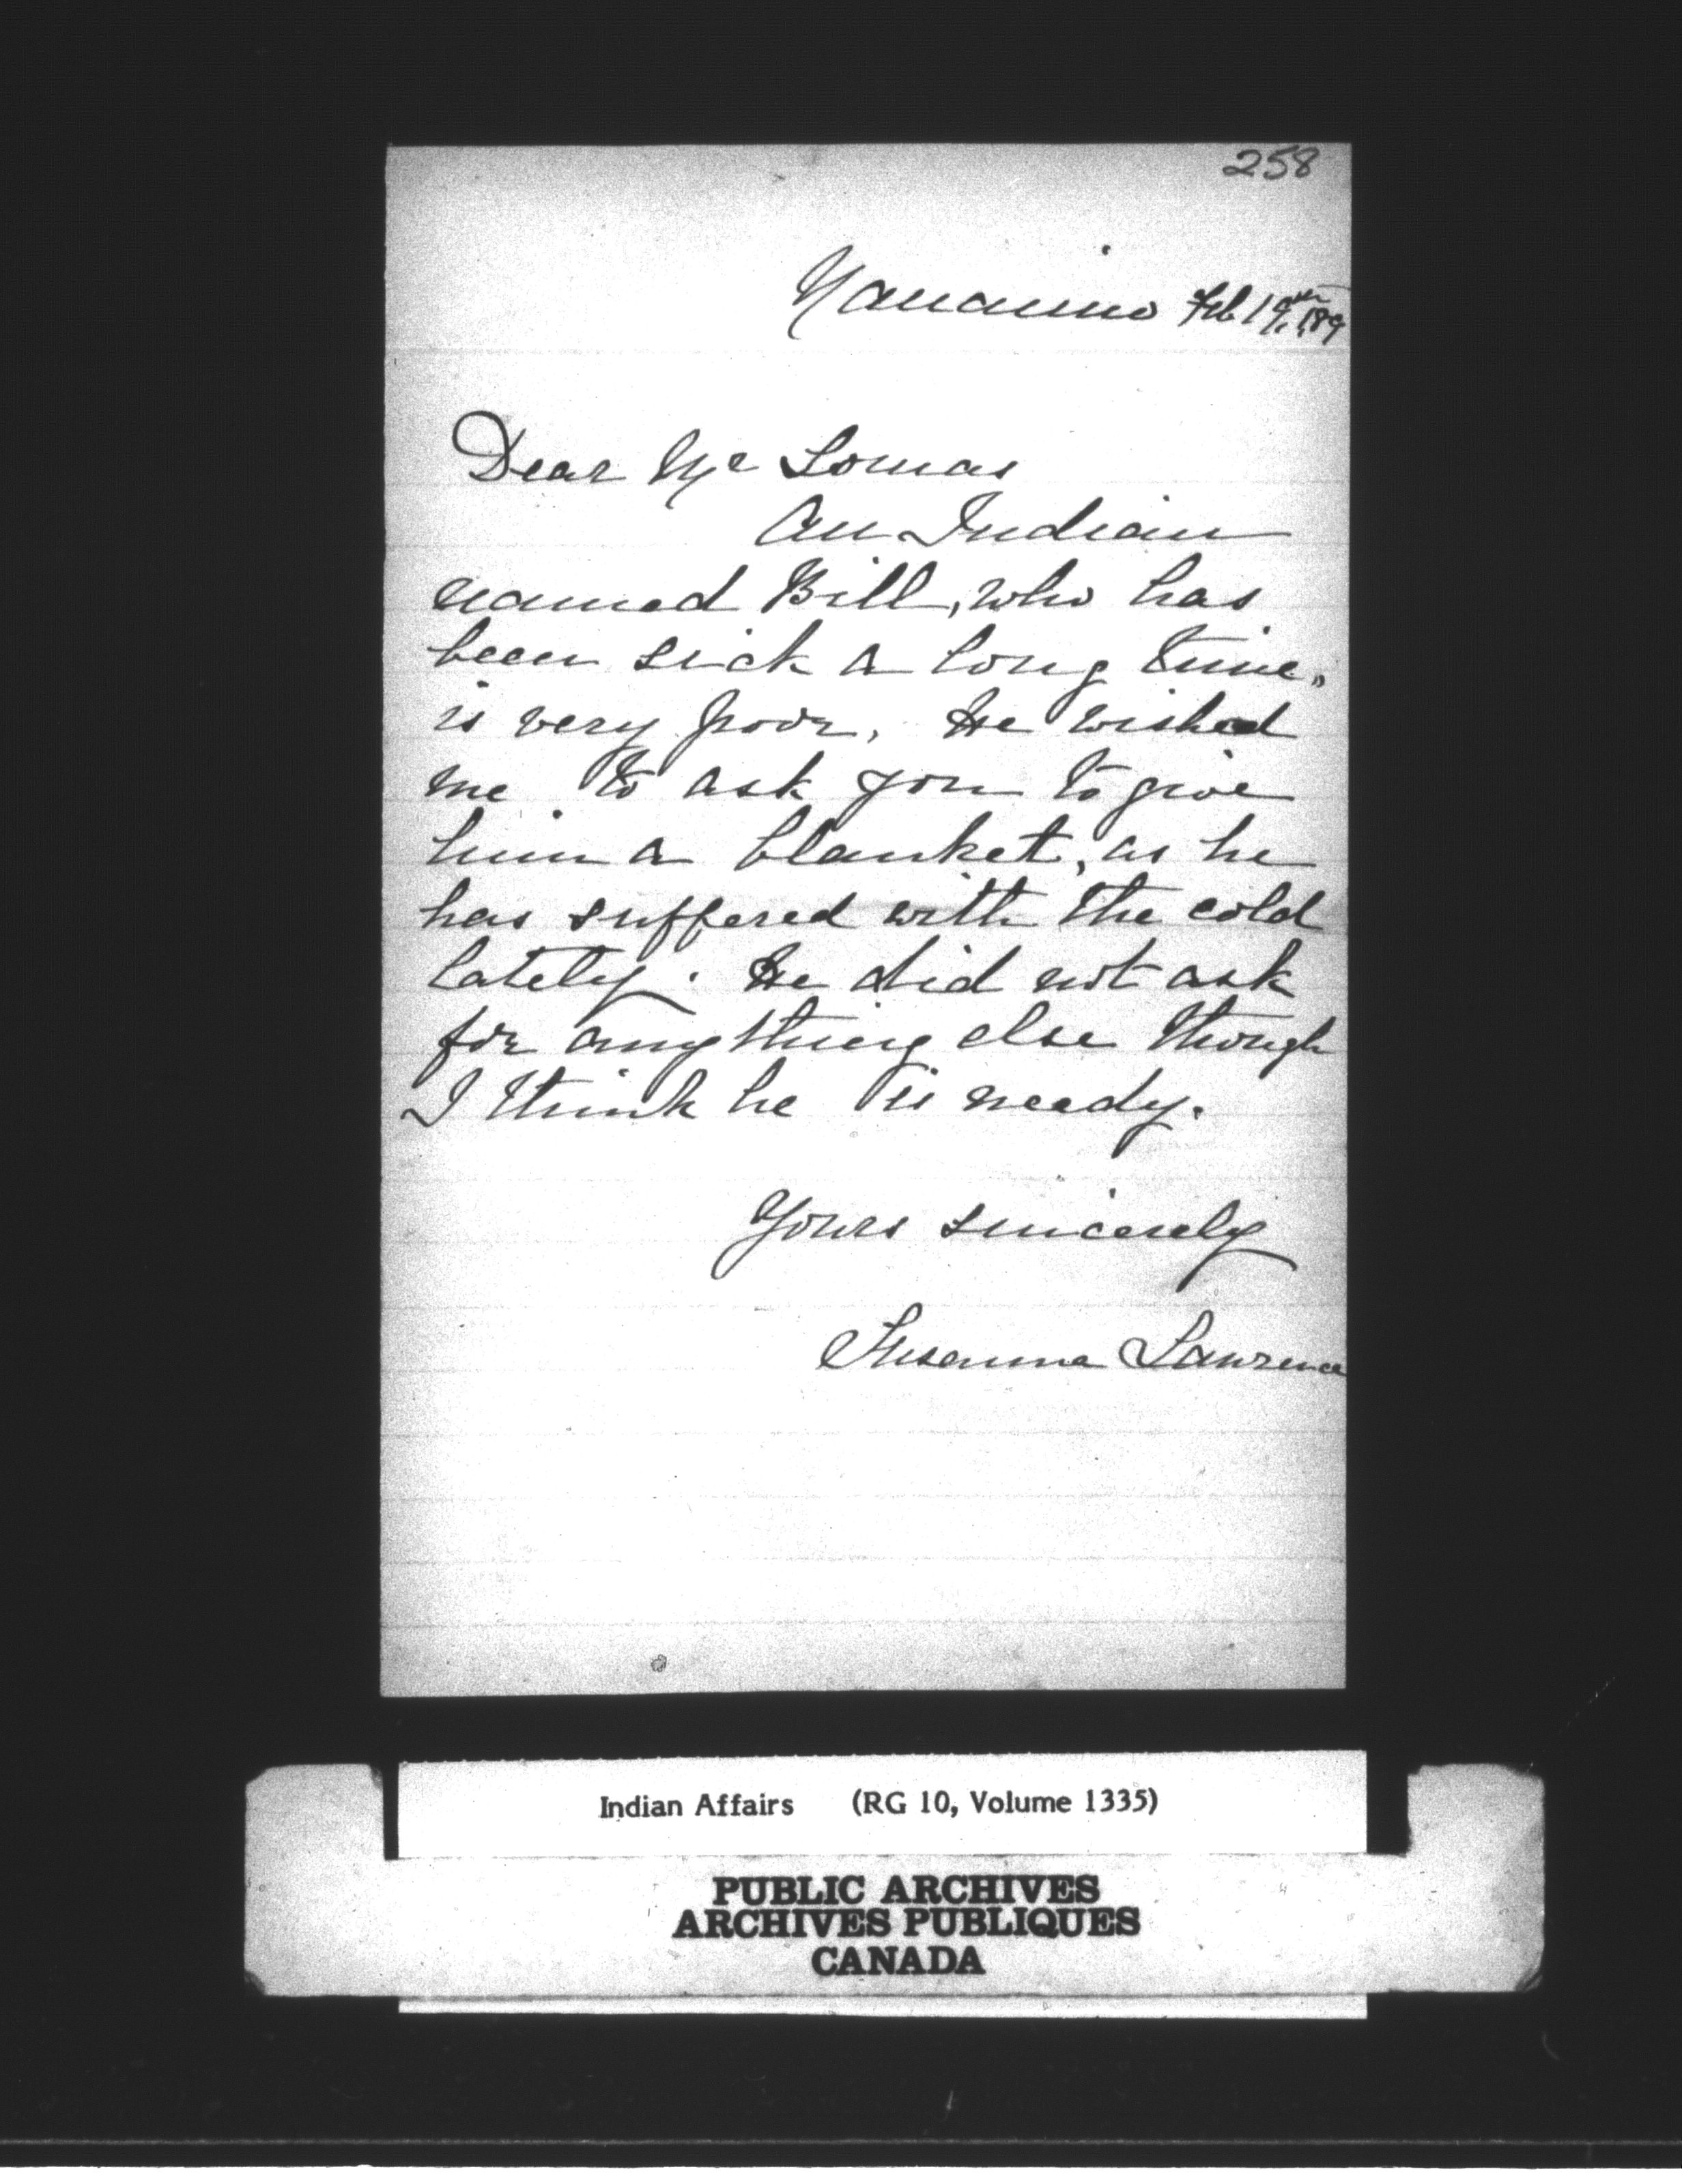 258
Nanaimo Feb 19th, 189
Dear Mr Lomas
An Indian
named Bill, who has
been sick a long time,
is very poor. He wished
me to ask you to give
him a blanket, as he
has suffered with the cold
lately. He did not ask
for anything else though
I think he is needy.
Yours sincerely
Susanna Lawrence
Indian Affairs (RG 10, Volume 1335)
PUBLIC ARCHIVES
ARCHIVES PUBLIQUES
CANADA